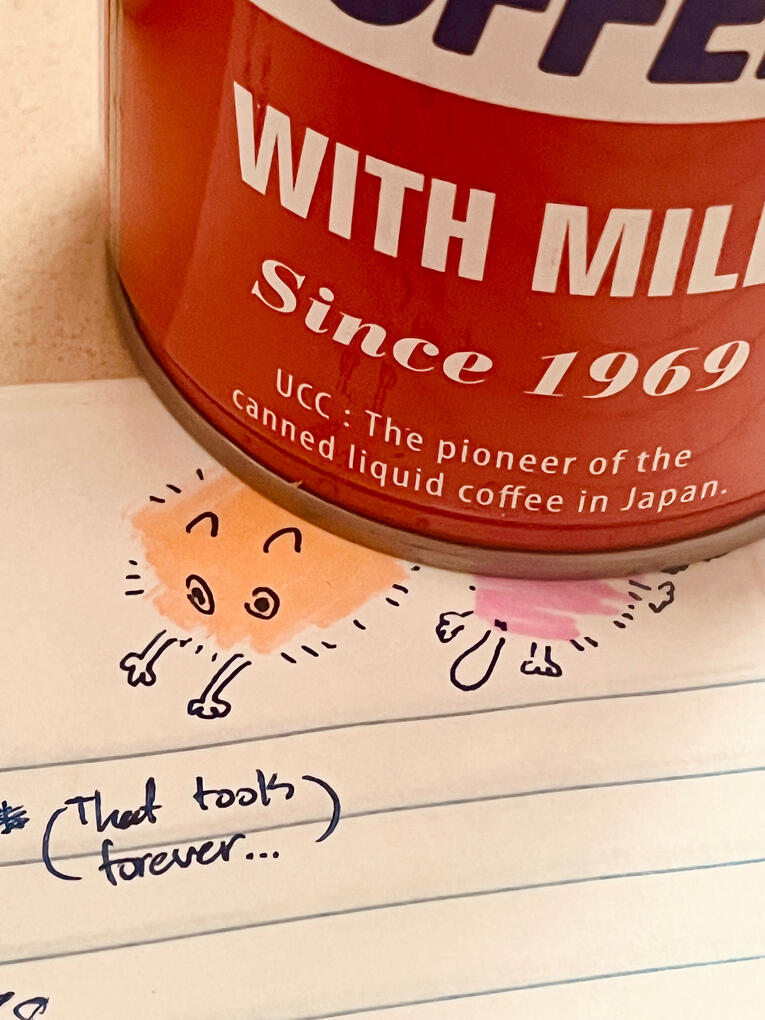 WITH
Since 1969
UCC : The pioneer of the
canned liquid coffee in Japan.
(That took
forever...)